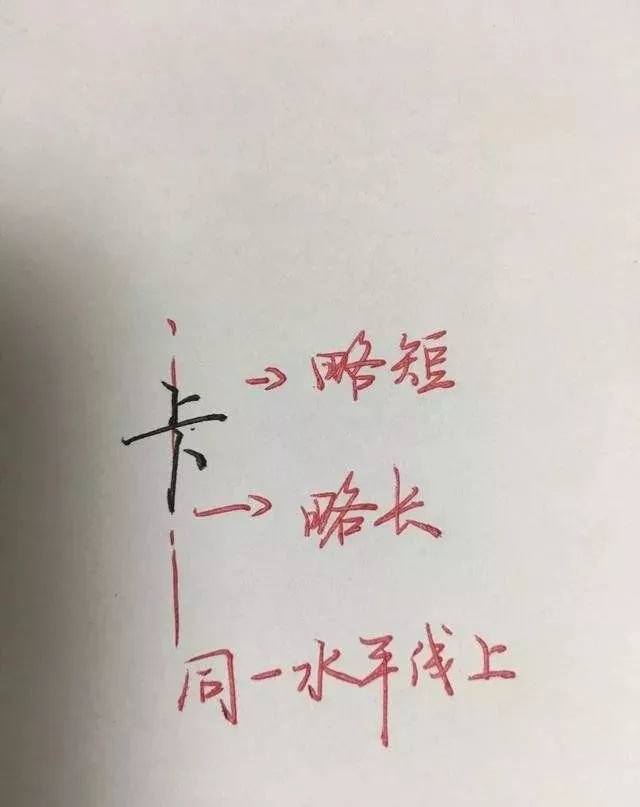 卡
→略短
→略长
同一水平线上